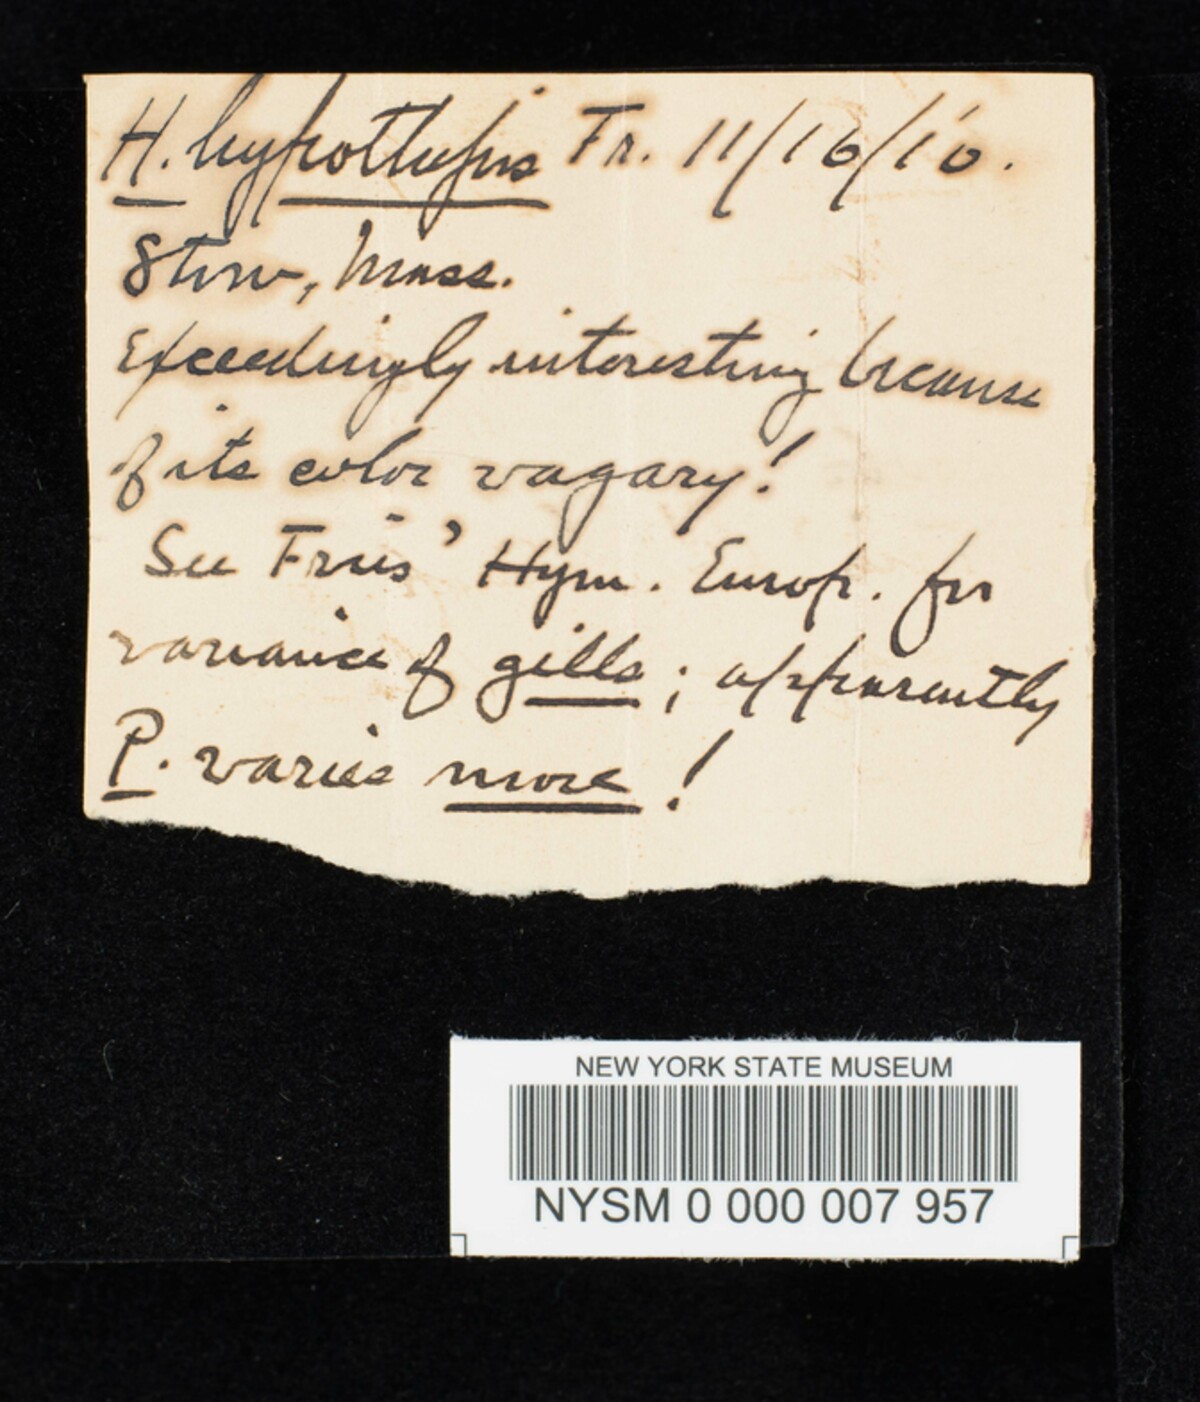 H. hypothejus Fr. 11/16/'10.
Stow, Mass.
Exceedingly interesting because
of its color vagary!
See Fries' Hym. Europ. for
variance of gills; apparently
P. varies more!
NEW YORK STATE MUSEUM
NYSM 0 000 007 957